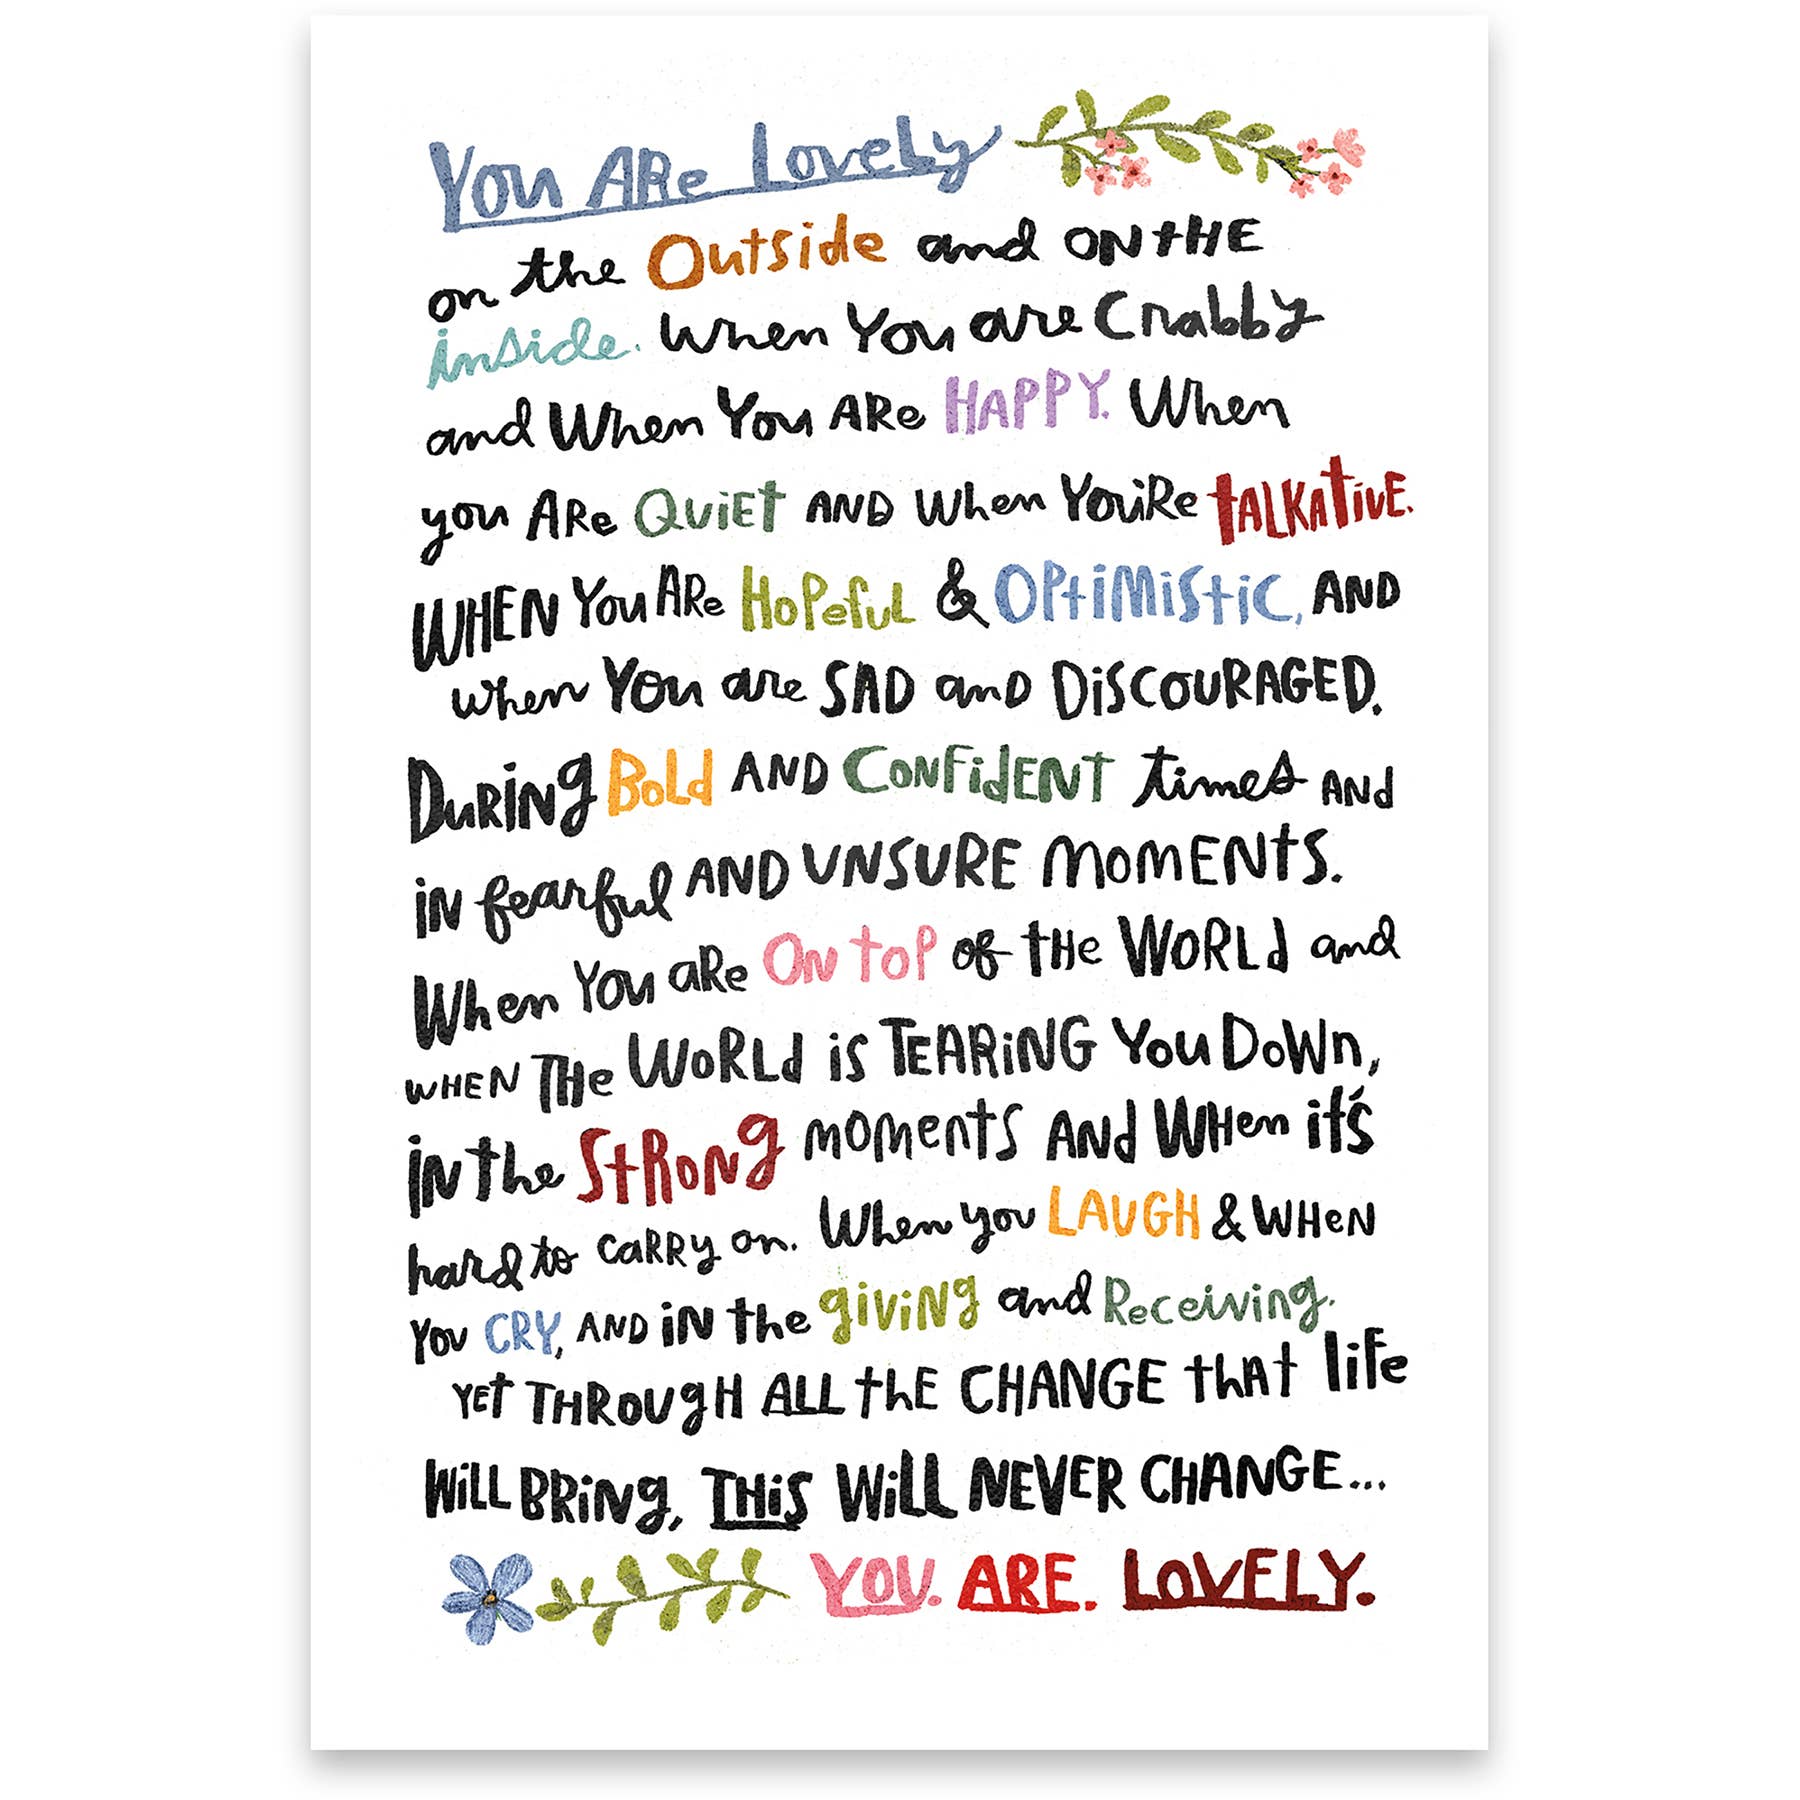 You ARe Lovely
on the Outside and ON tHE
inside. When You are Crabby
and When You ARe HAPPY. When
you ARe QuiEt AND when You'Re tALKAtivE.
WHEN You ARe HoPefuL & OPtiMistic, AND
when You are SAD and DiSCOURAGED.
DuRiNg BoLd AND CoNFidENT times ANd
iN fearful AND UNSURE MOMENtS.
When You aRe ON toP of tHe WORLd and
wHEN THe WoRLd iS TEARiNG You DoWn,
iN the StRoNg moments ANd WHen it's
hard to caRRy on. When you LAUGH & WHeN
You CRY, AND iN the giviNg and Receiving.
YEt THROugH ALL tHE CHANGE tHAt life
WiLL BRiNg, THiS WiLL NEVER CHANGE...
YOU. ARE. LOVELY.